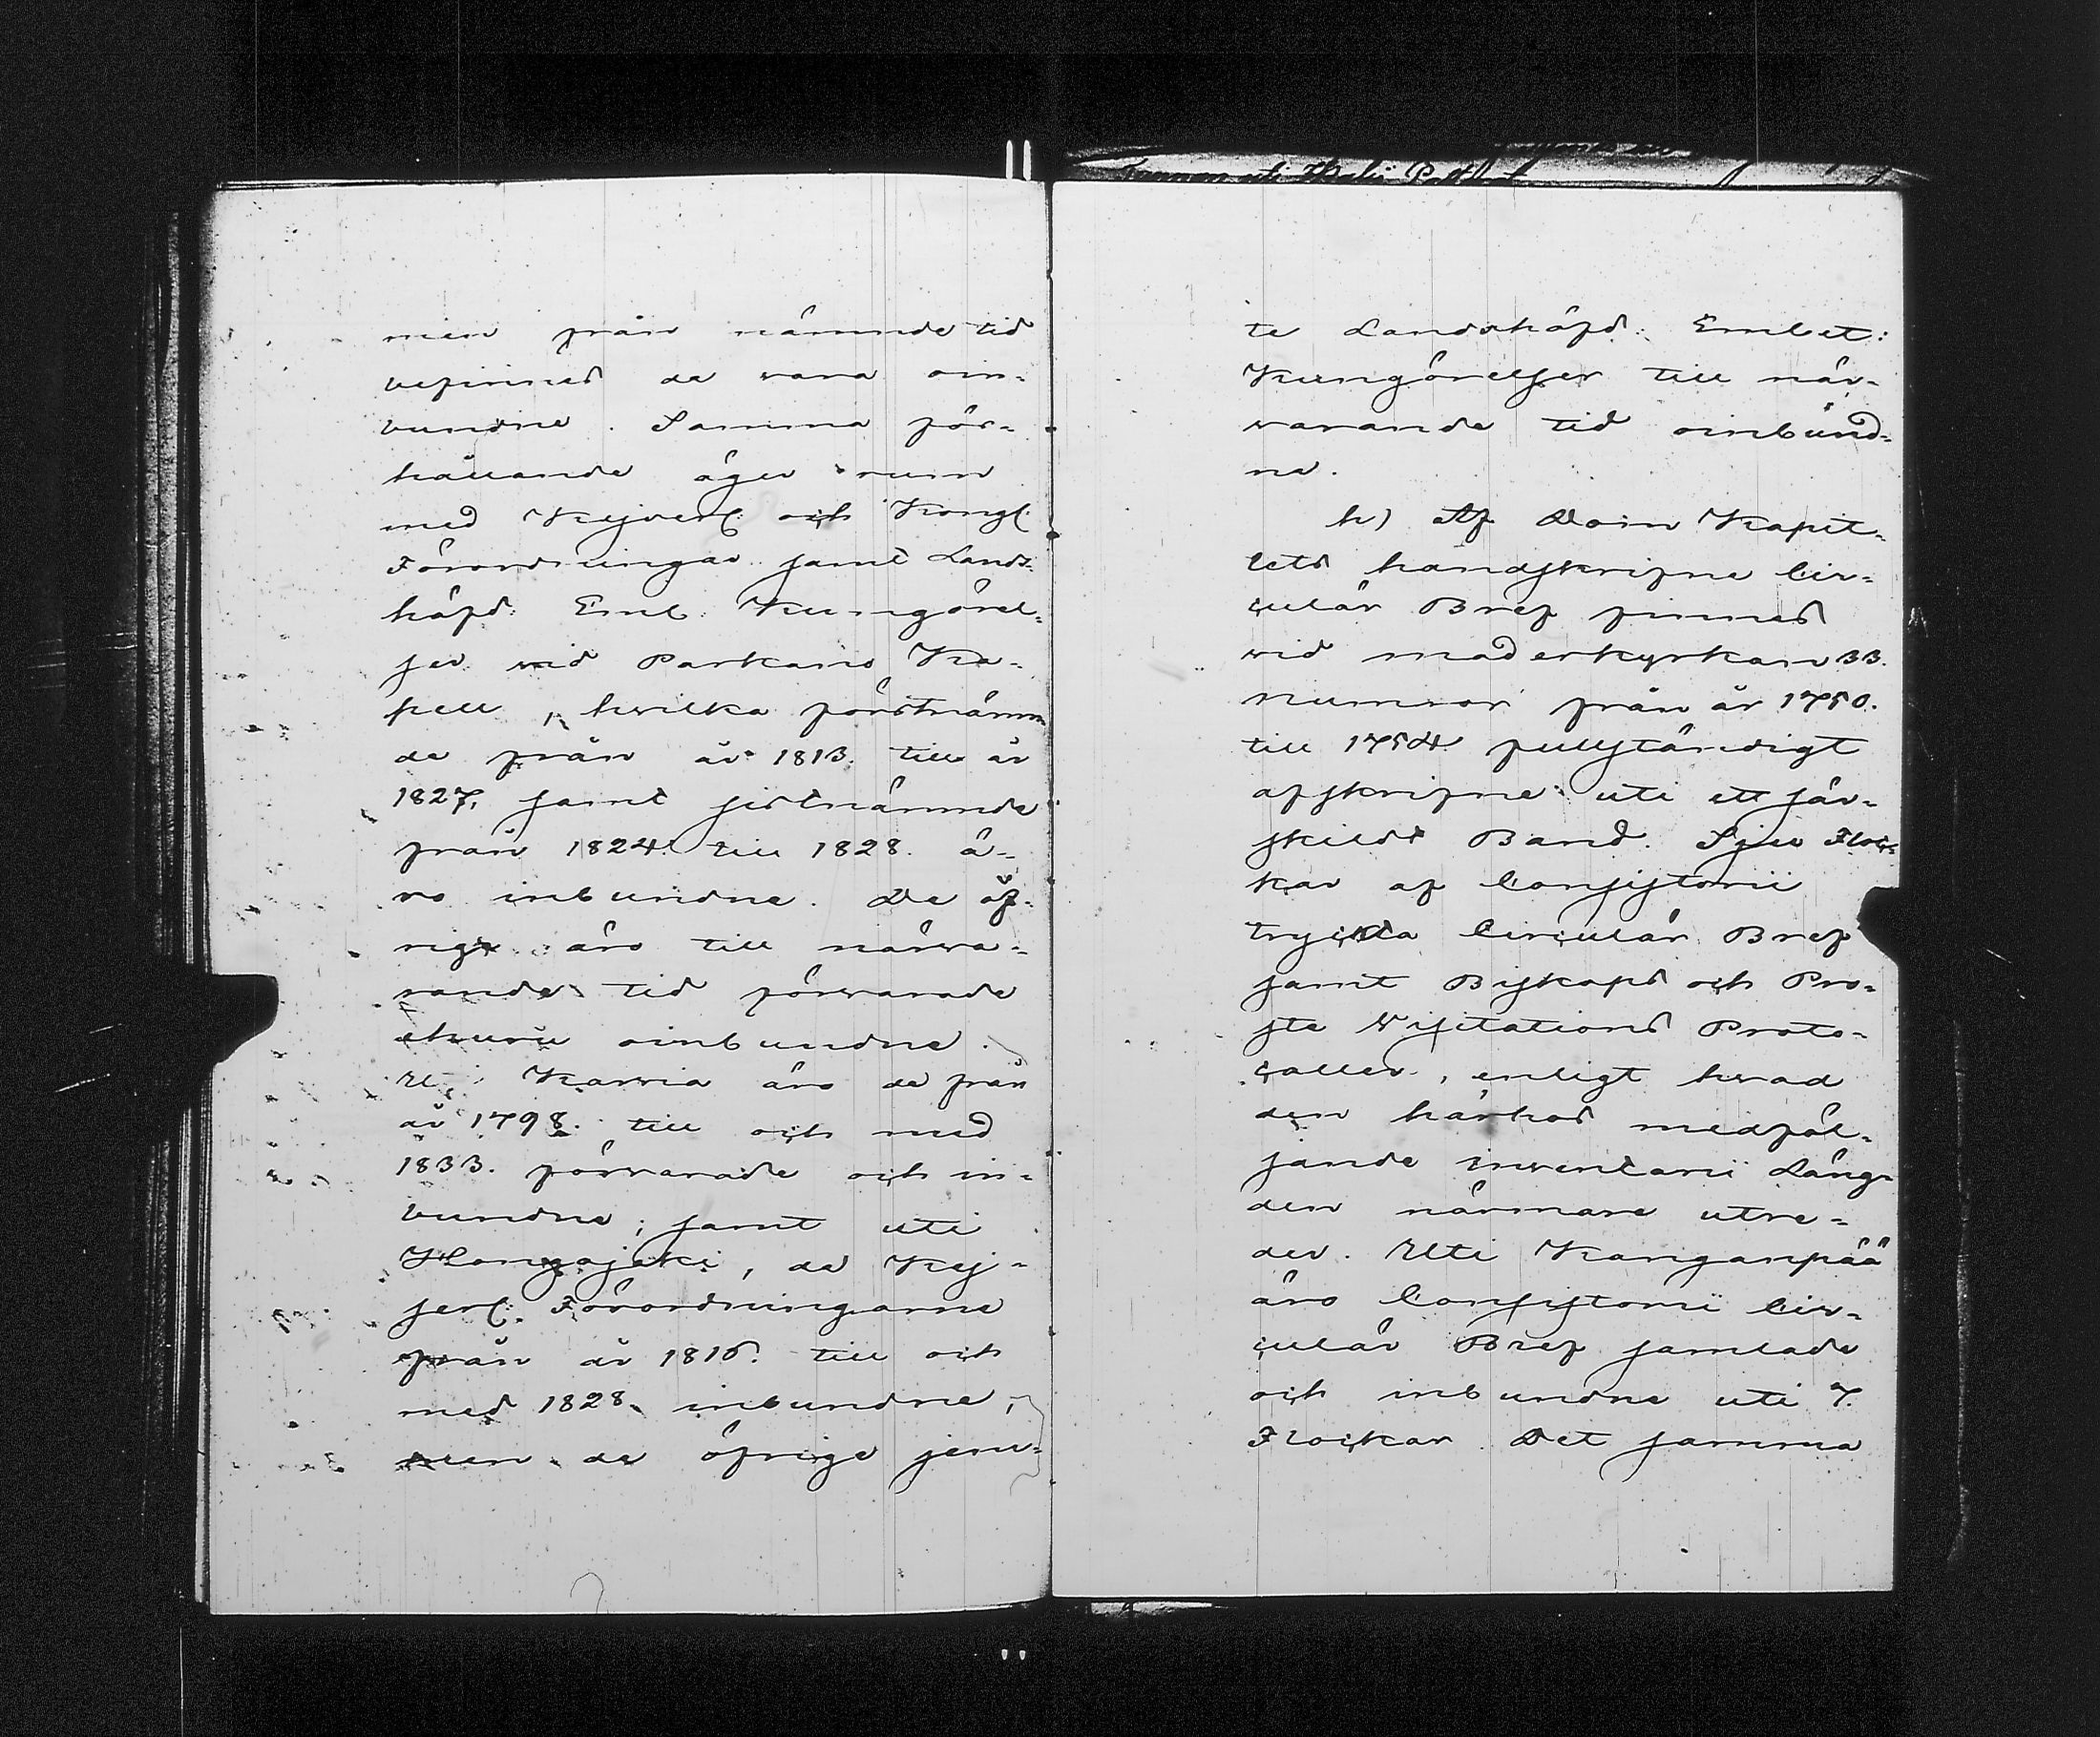 men från nämnde tid
befinnes de vara oin-
bundne. Samma för-
hållande äger rum
med Kejserl: och Kongl:
Förordningar samt Lands-
höfd: Emb. Kungörel-
ser vid Parkano Ka-
pell, hvilka förstnämn
de från år 1813. till år
1827, samt sistnämnde
från 1824. till 1828. ä-
ro inbundne. De öf-
rige äro till närva-
rande tid förvarade
ehuru oinbundne.
Uti Karvia äro de från
år 1798. till och med
1833. förvarade och in-
bundne, samt uti
Hongojoki, de Kej-
serl: Förordningarne
från år 1816. till och
med 1828. inbundne,
men de öfrige jem-
te Landshöfd: Embet:
Kungörelser till när-
varande tid oinbund-
ne.
h) Af Dom Kapit-
lets handskrifne Cir-
culär Bref finnes
vid moderkyrkan 33.
nummror från år 1750.
till 1754. fullständigt
afskrifne uti ett sär-
skildt Band. Sju Floc-
kar af Consistorii
tryckta Circulär Bref
samt Biskops och Pro-
ste Visitations Proto-
coller, enligt hvad
den härhos medföl-
jande inventarii Läng-
den närmare utre-
der. Uti Kanganpää
äro Consistorii Cir-
culär Bref samlade
och inbundne uti 7.
Flockar. Det samma